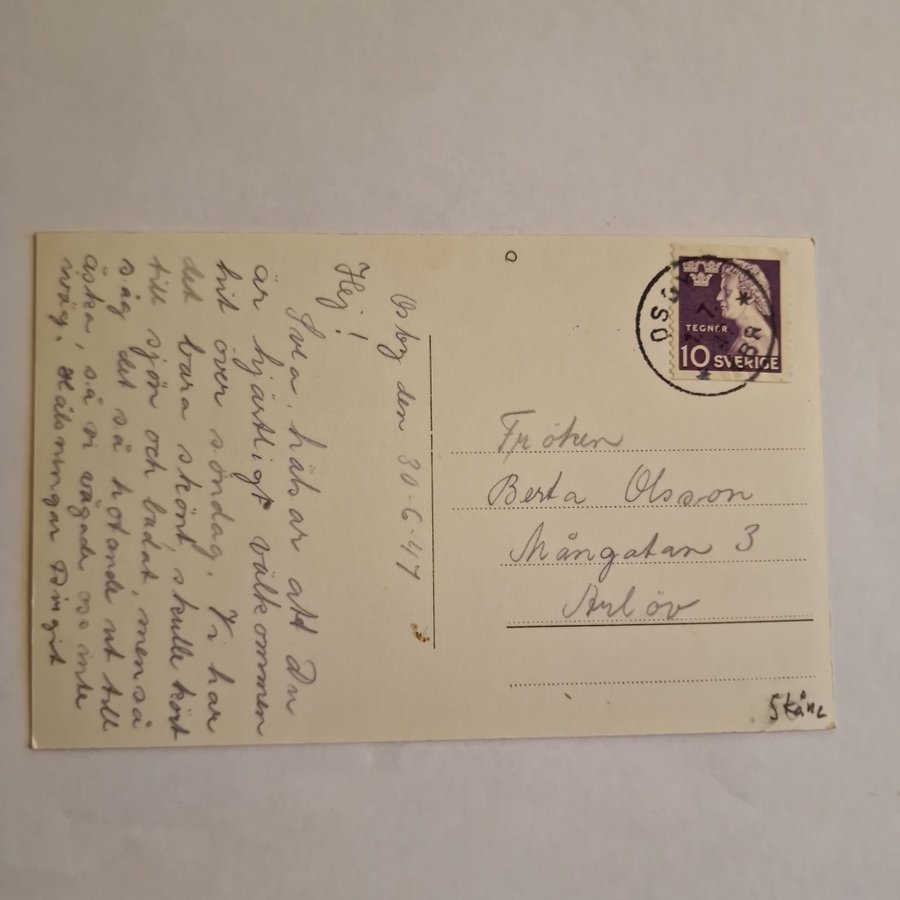 Osby den 30-6-47
Hej!
Svea, hälsar att Du
är hjärtligt välkommen
hit över söndag. Vi har
det bara skönt, skulle kört
till sjön och badat, men så
såg det så hotande ut till
åska, så vi vågade oss inte
iväg. Hälsningar Birgit
TEGNÉR
10 SVERIGE
OSBY
7.
LBR
Fröken
Berta Olsson
Mångatan 3
Arlöv
Skåne